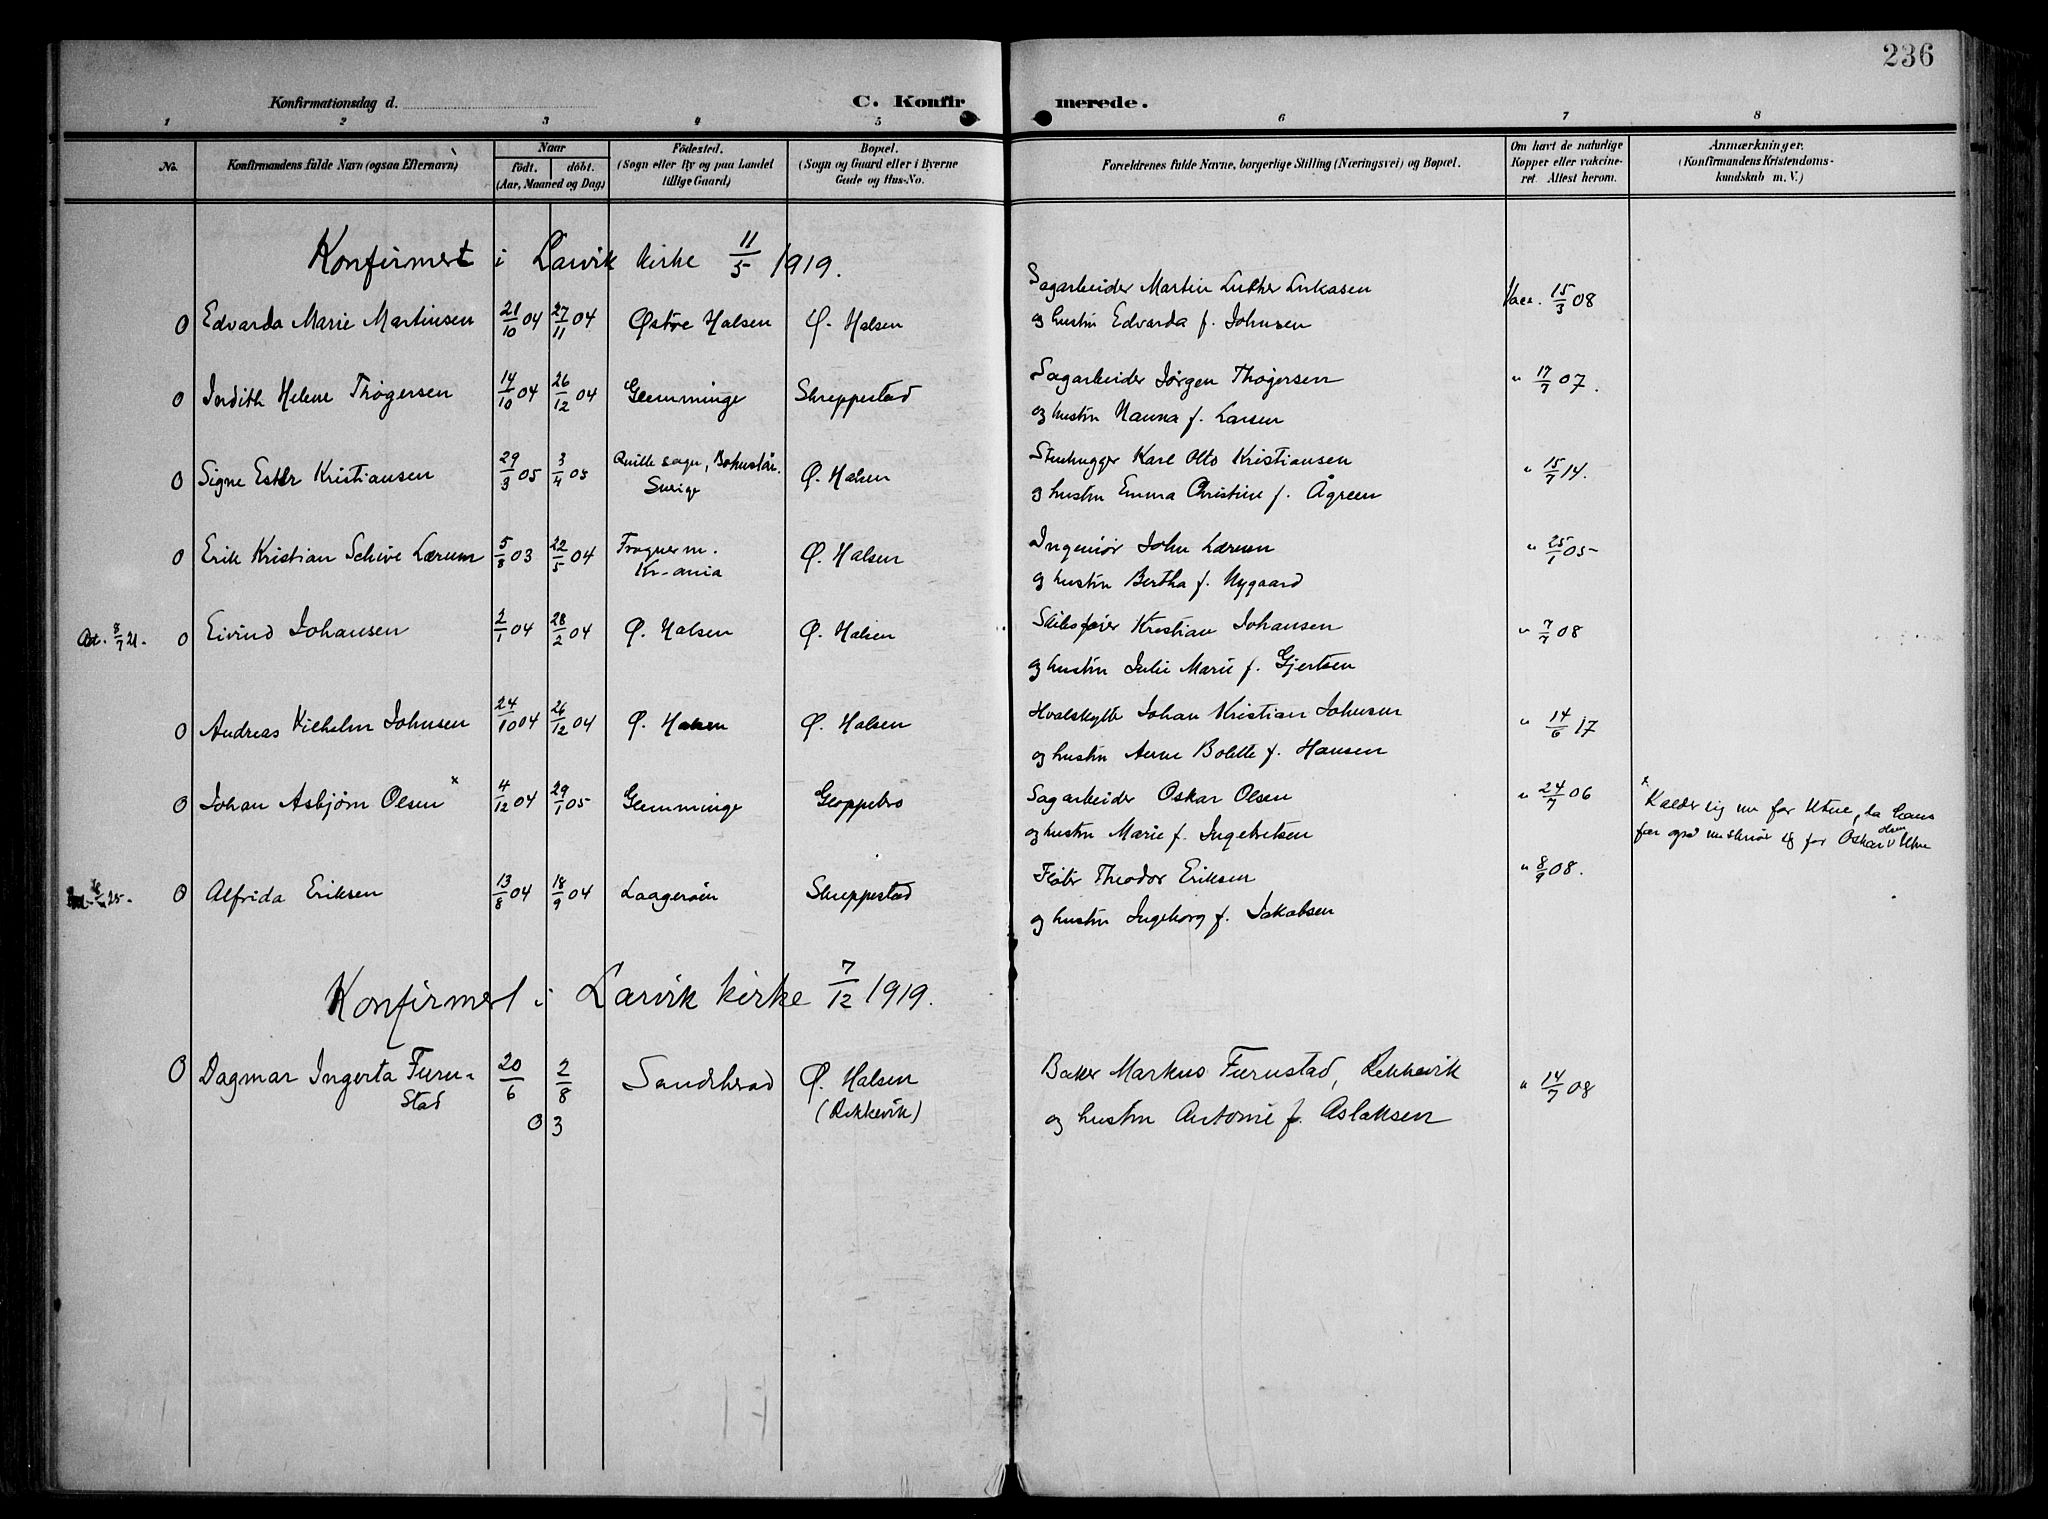 236
Konfirmationsdag d.
C. Konfir
merede.
1 2 3 4 5 6 7 8
No. Konfirmandens fulde Navn (ogsaa Efternavn)
Naar
født. døbt.
(Aar, Maaned og Dag)
Fødested.
(Sogn eller By og paa Landet
tillige Gaard)
Bopæl.
(Sogn og Gaard eller i Byerne
Gade og Hus-No.
Forældrenes fulde Navne, borgerlige Stilling (Næringsvei) og Bopæl.
Om havt de naturlige
Kopper eller vakcine-
ret. Attest herom.
Anmærkninger.
(Konfirmandens Kristendoms-
kundskab m. V.)
Konfirmert i Larvik kirke 11/5 1919.
0 Edvarda Marie Martinsen 21/10 04 27/11 04 Østre Halsen Ø. Halsen Sagarbeider Martin Luther Lukasen Vacc. 15/3 08
og hustru Edvarda f. Johnsen
0 Jndith Helene Thøgersen 14/10 04 26/12 04 Glemminge Skreppestad Sagarbeider Jørgen Thøgersen " 17/7 07.
og hustru Nanna f. Larsen
0 Signe Ester Kristiansen 29/3 05 3/4 05 Quille sogn, Bohuslän. Ø. Halsen Stenhugger Karl Otto Kristiansen " 15/7 14.
Sverige og hustru Emma Christine f. Ågreen
0 Erik Kristian Schive Lærum 5/8 03 22/5 04 Frogner m. Ø. Halsen Ingeniør John Lærum " 25/1 05
Kr-ania og hustru Bertha f. Nygaard
Att. 8/7 21. 0 Eivind Johansen 2/1 04 28/2 04 Ø. Halsen Ø. Halsen Skibsfører Kristian Johansen " 7/7 08
og hustru Julie Marie f. Gjertsen
0 Andreas Vilhelm Johnsen 24/10 04 26/12 04 Ø. Halsen Ø. Halsen Hvalskytte Johan Kristian Johnsen " 14/6 17
og hustru Anne Bolette f. Hansen
0 Johan Asbjørn Olsen x 4/12 04 29/1 05 Glemminge Gloppebro Sagarbeider Oskar Olsen " 24/7 06 x Kalder sig nu for Utne, da hans
og hustru Marie f. Ingebretsen far også nu skriver sig for Oskar Olsen Utne
25. 0 Alfrida Eriksen 13/8 04 18/9 04 Laagerøen Skreppestad Fløter Theodor Eriksen " 8/9 08.
og hustru Ingeborg f. Jakobsen
Konfirmert i Larvik kirke 7/12 1919.
0 Dagmar Ingerta Furu- 20/6 2/8 Sandeherad Ø. Halsen Baker Markus Furustad, Rekkevik " 14/7 08
stad 0 3 (Rekkevik) og hustru Antonie f. Aslaksen